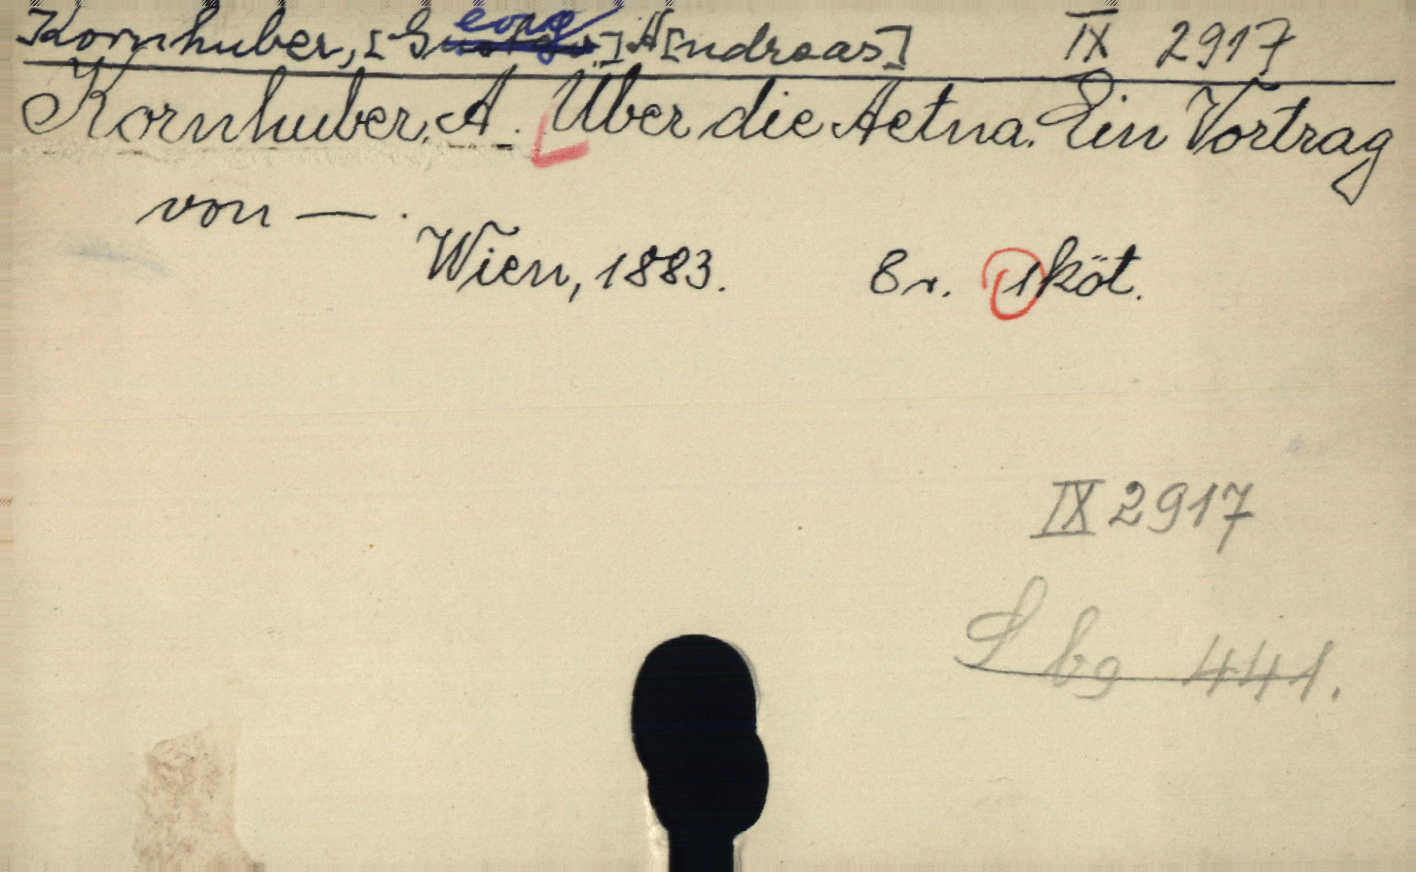 Kornhuber, [Georg] A[ndreas] IX 2917
Kornhuber, A. Über die Aetna. Ein Vortrag
von — .
Wien, 1883. 8r. 1 köt.
IX 2917
Lbg 441.